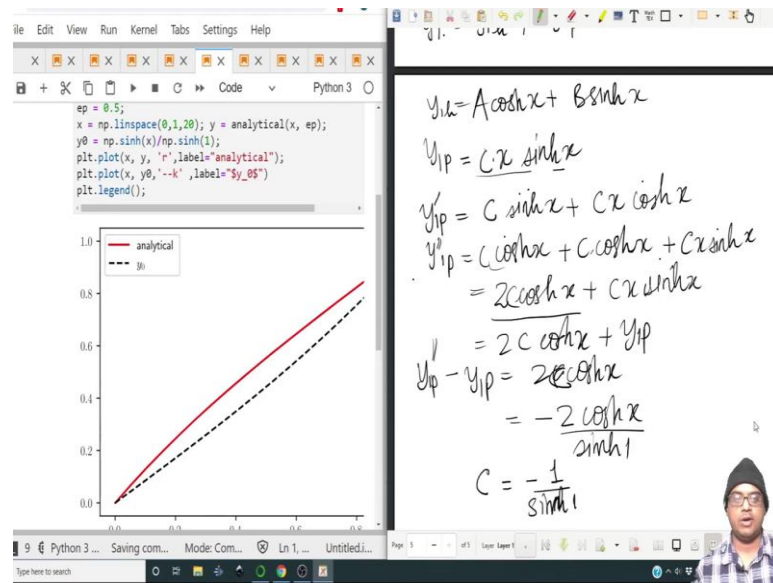 ile Edit View Run Kernel Tabs Settings Help
Code Python 3
ep = 0.5;
x = np.linspace(0,1,20); y = analytical(x, ep);
y0 = np.sinh(x)/np.sinh(1);
plt.plot(x, y, 'r',label="analytical");
plt.plot(x, y0,'--k' ,label="$y_0$")
plt.legend();
1.0
analytical
y₀
0.8
0.6
0.4
0.2
0.0
9 Python 3 ... Saving com... Mode: Com... Ln 1, ... Untitled.i...
Type here to search
y₁h = A cosh x + B sinh x
y₁p = C x sinh x
y₁p' = C sinh x + C x cosh x
y₁p'' = C cosh x + C cosh x + C x sinh x
= 2C cosh x + C x sinh x
= 2 C cosh x + y₁p
y₁p'' - y₁p = 2C cosh x
= - 2 cosh x / sinh 1
C = - 1 / sinh 1
Page 5 of 5 Layer Layer 1